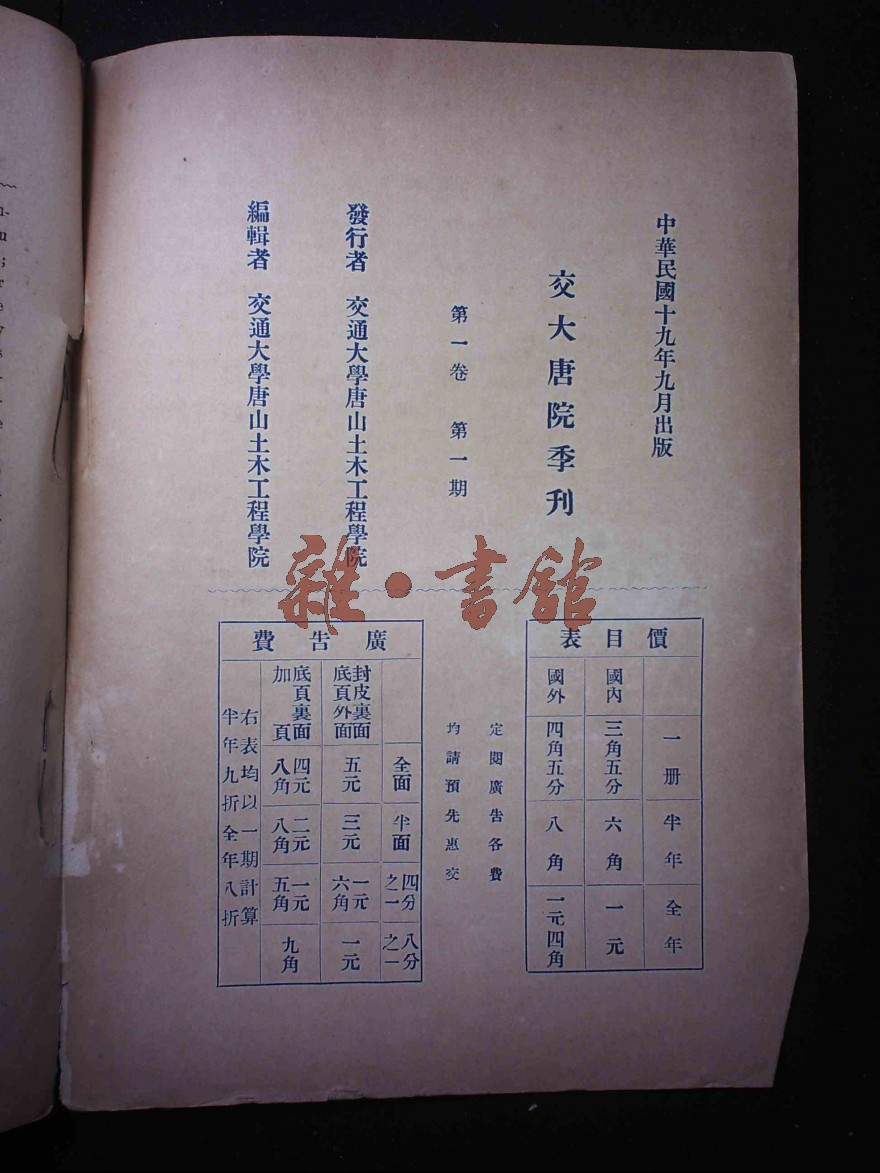 中華民國十九年九月出版
交大唐院季刊
第一卷 第一期
發行者 交通大學唐山土木工程學院
編輯者 交通大學唐山土木工程學院
價目表
一册 半年 全年
國內 三角五分 六角 一元
國外 四角五分 八角 一元四角
定閱廣告各費
均請預先惠交
廣告費
全面 半面 四分之一 八分之一
封皮裏面
底頁外面
五元 三元 一元六角 一元
底頁裏面
加頁
四元八角 二元八角 一元五角 九角
右表均以一期計算
半年九折全年八折
雜·書館
u
r
e
y
s
e